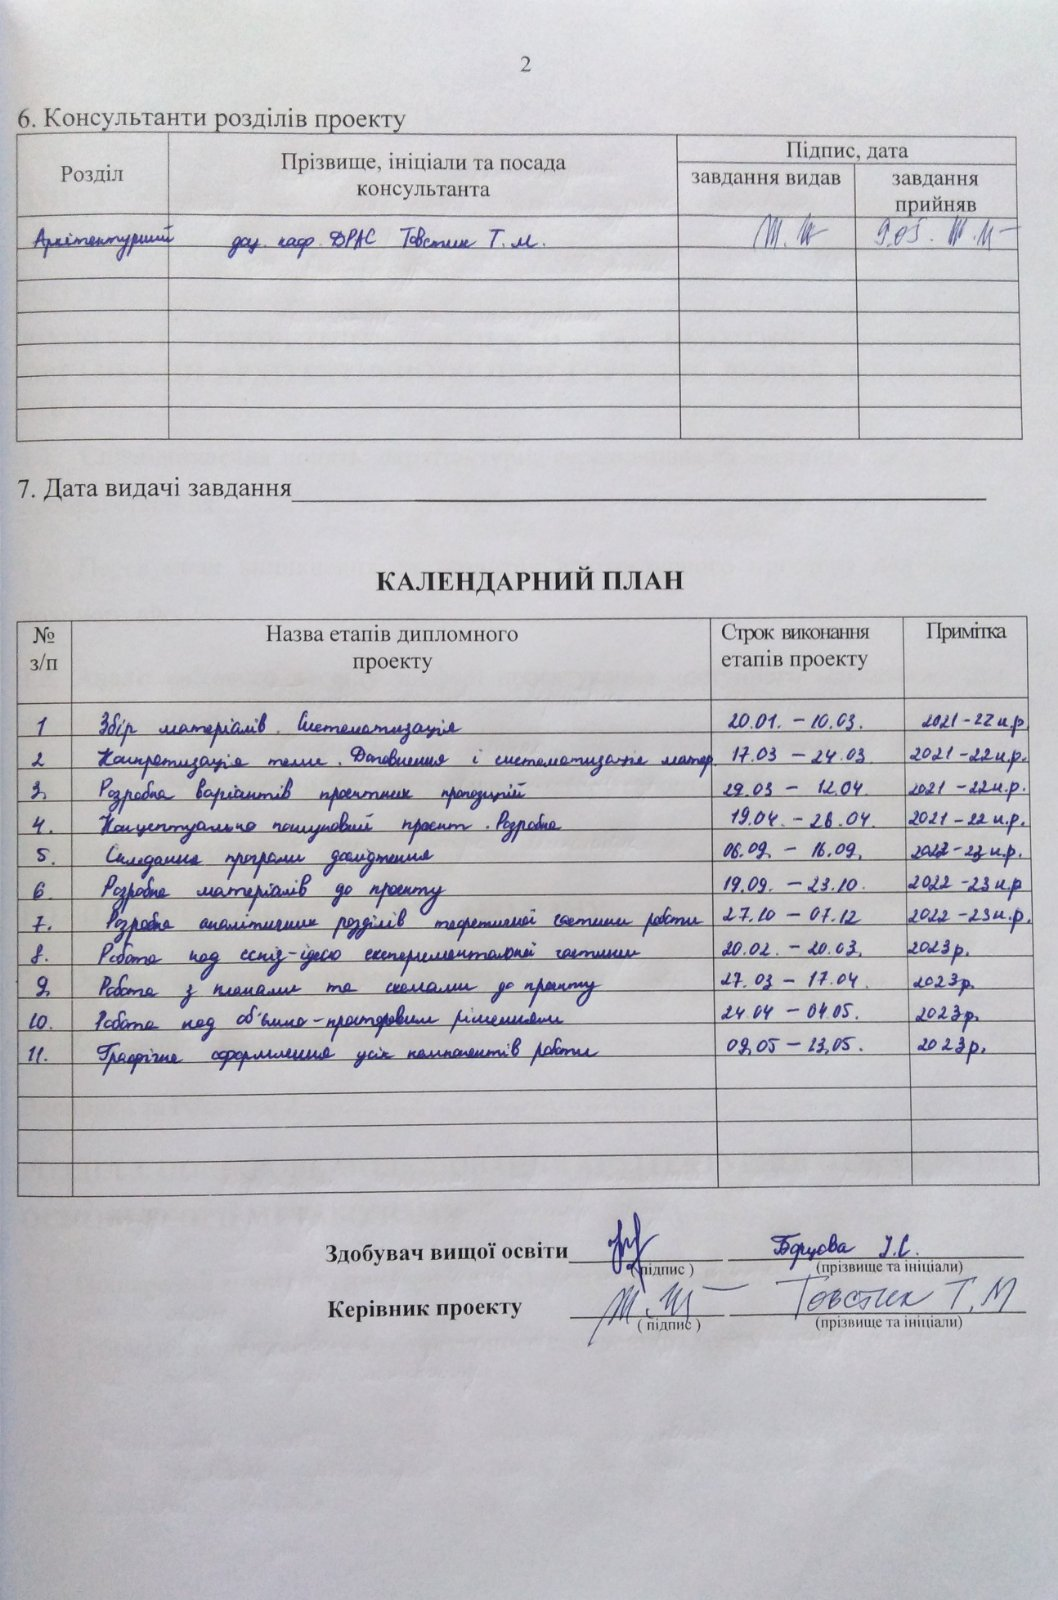 2
6. Консультанти розділів проекту
Розділ Прізвище, ініціали та посада консультанта Підпис, дата
завдання видав завдання прийняв
Архітектурний доц. каф. ДРАС Товстик Т.М. 9.05.
7. Дата видачі завдання
КАЛЕНДАРНИЙ ПЛАН
№ з/п Назва етапів дипломного проекту Строк виконання етапів проекту Примітка
1 Збір матеріалів. Систематизація 20.01. – 10.03. 2021-22 н.р.
2 Конкретизація теми. Доповнення і систематизація матер. 17.03 – 24.03 2021-22 н.р.
3. Розробка варіантів проектних пропозицій 29.03 – 12.04. 2021-22 н.р.
4. Концептуально пошуковий проєкт. Розробка 19.04. – 26.04. 2021-22 н.р.
5. Складання програми дослідження 06.09. – 16.09. 2022-23 н.р.
6 Розробка матеріалів до проекту 19.09. – 23.10. 2022-23 н.р
7. Розробка аналітичних розділів теоретичної частини роботи 27.10 – 07.12 2022-23 н.р.
8. Робота над ескіз-ідеєю експериментальної частини 20.02. – 20.03. 2023р.
9. Робота з планами та схемами до проекту 27.03 – 17.04. 2023р.
10. Робота над об'ємно-просторовим рішенням 24.04 – 04.05. 2023р.
11. Графічне оформлення усіх компонентів роботи 09.05 – 23.05. 2023р.
Здобувач вищої освіти Борцова
( підпис ) (прізвище та ініціали)
Керівник проекту Товстик Т.М
( підпис ) (прізвище та ініціали)